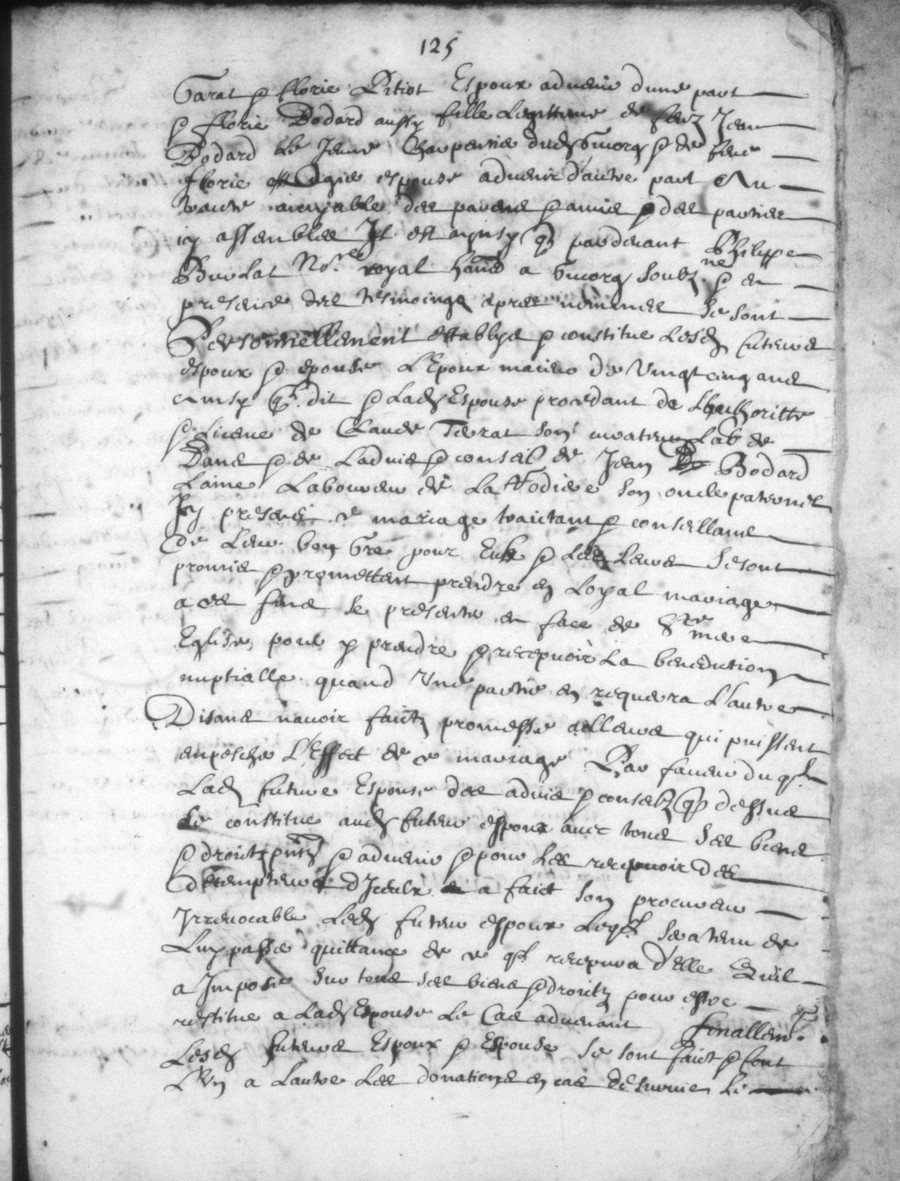 125
Garat & florie Petiot Espoux advenir d'une part
& florie Dodard aussy fille Legittime de feuz Jean
Dodard le Jeune Charpentier dud & de feue
florie espouse advenir d'autre part Au
traite aimable des parens & amis & des parties
icy assemblees Jl est aynsy q par devant Philippe
No.re royal a soubz ne & en
presence des tesmoings apres nommes se sont
Personnellement establys & constitue Lesd futeurs
espoux & espouse L'Epoux maieur de Vingt cinq ans
ainsy q dit & Lad Espouse procedant de Lauthoritte
& licence de Claude Terat son curateur Lab de
Dans & de Ladvis & conseil de Jean Dodard
Laine Laboureur de La son oncle paternel
Jcy present ce mariage traictant & conseillans
de Leur bon Gre pour Eulx & Les Leurs se sont
promis & promettent prendre en Loyal mariage
a ces fins se presenter en face de S.te mere
Eglise pour y prendre & recepvoir La benediction
nuptialle quand Une partie en requerra L'autre
Disans n'avoir faict promesse allieurs qui puissent
empescher L'Effect de ce mariage Par faveur duq.l
Lad future Espouse des advis & conseilz q dessus
se constitue aud futeur espoux avec tous ses biens
& droictz pntz & advenir & pour les recepvoir des
detempteurs d'Jceulx a faict son procureur
Jrrevocable Led futeur espoux Leq.l sera tenu de
Luy passer quittance de ce q.l recepvra d'elle Quil
a Jmposer sur tous ses biens & droictz pour estre
restitue a Lad Espouse Le Cas advenant finallem.t
Lesd futeurs Espoux & Espouse se sont faict & font
L'Un a Lautre Les donations en cas de survie